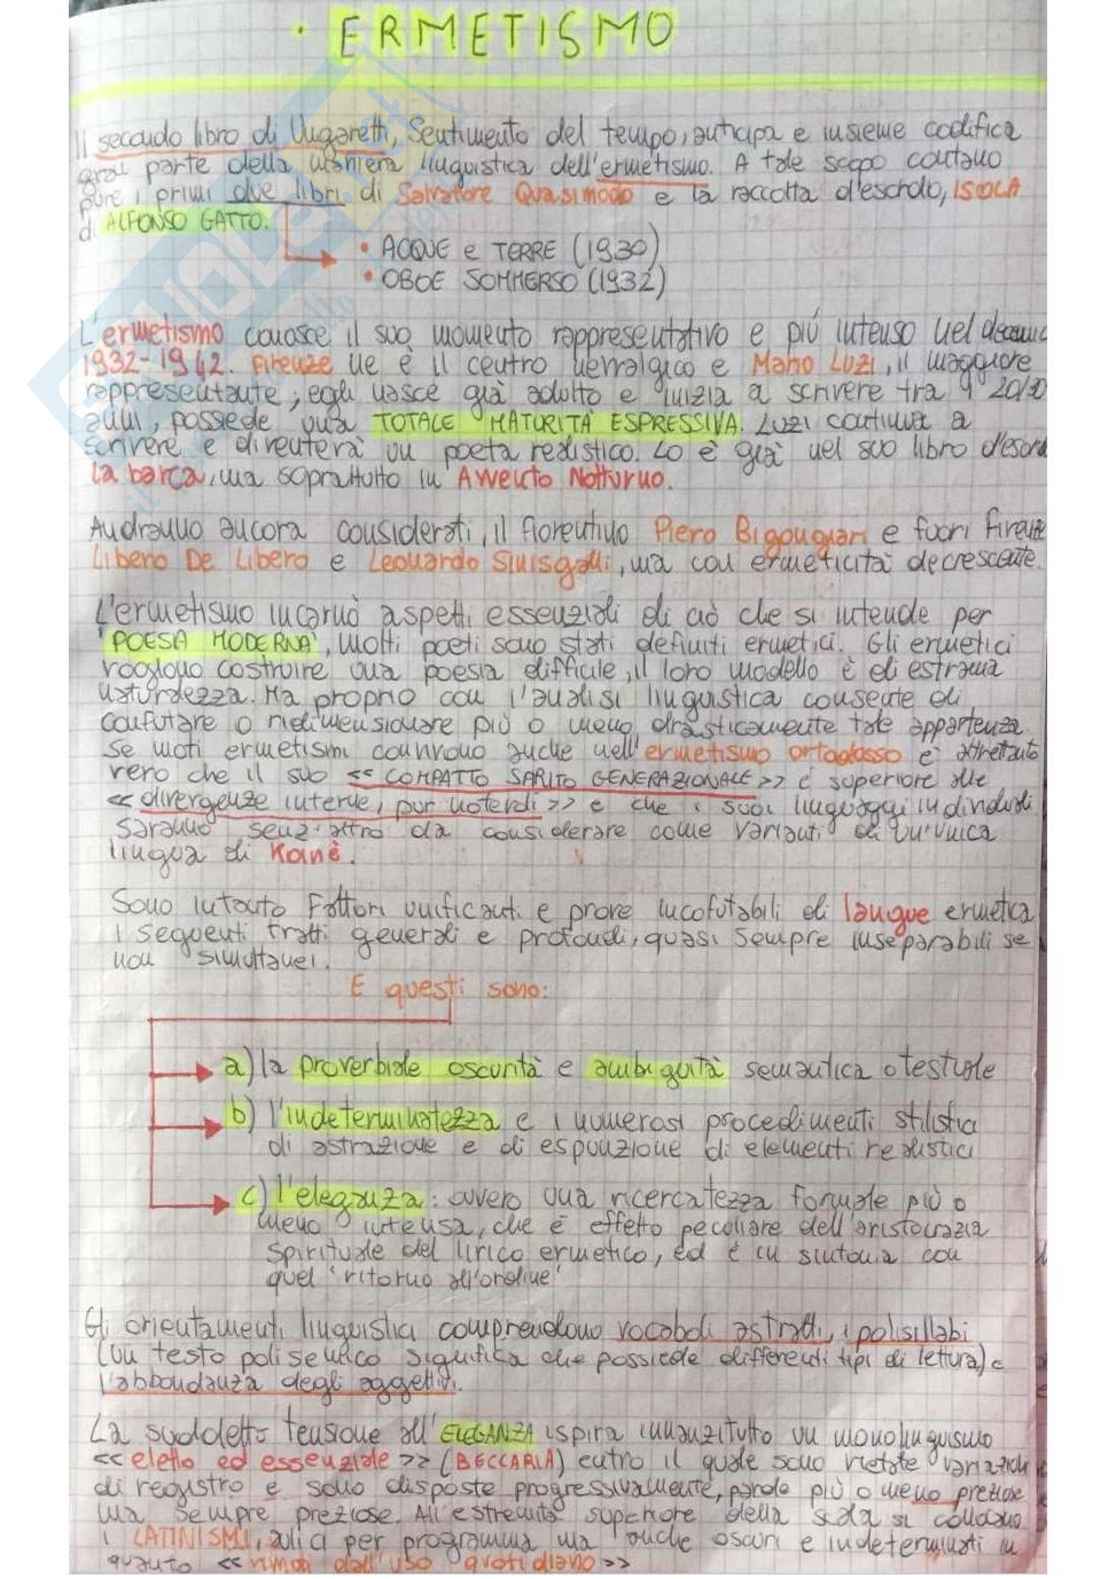 • ERMETISMO
Il secondo libro di Ungaretti, Sentimento del tempo, anticipa e insieme codifica
gran parte della maniera linguistica dell'ermetismo. A tale scopo contano
pure i primi due libri di Salvatore Quasimodo e la raccolta d'esordio, ISOLA
di ALFONSO GATTO.
• ACQUE e TERRE (1930)
• OBOE SOMMERSO (1932)
L'ermetismo conosce il suo momento rappresentativo e più intenso nel decennio
1932-1942. Firenze ne è il centro nevralgico e Mario Luzi, il maggiore
rappresentante, egli nasce già adulto e inizia a scrivere tra i 20/30
anni, possiede una TOTALE MATURITÀ ESPRESSIVA. Luzi continua a
scrivere e diventerà un poeta realistico. Lo è già nel suo libro d'esord
la barca, ma soprattutto in Avvento Notturno.
Andranno ancora considerati, il fiorentino Piero Bigongiari e fuori Firenze
Libero De Libero e Leonardo Sinisgalli, ma con ermeticità decrescente.
L'ermetismo incarnò aspetti essenziali di ciò che si intende per
'POESA MODERNA', molti poeti sono stati definiti ermetici. Gli ermetici
vogliono costruire una poesia difficile, il loro modello è di estrama
naturalezza. Ma proprio con l'analisi linguistica consente di
confutare o ridimensionare più o meno drasticamente tale appartenza.
Se moti ermetismi convivono anche nell'ermetismo ortodosso è altrettanto
vero che il suo << COMPATTO SAPITO GENERAZIONALE >> è superiore alle
<< divergenze interne, pur notevoli >> e che i suoi linguaggi individuali
saranno senz'altro da considerare come varianti di un'unica
lingua di Koinè.
Sono intanto Fattori unificanti e prove incofutabili di langue ermetica
i seguenti tratti generali e profondi, quasi sempre inseparabili se
non simultanei.
E questi sono:
a) la proverbiale oscurità e ambiguità semantica o testuale
b) l'indeterminatezza e i numerosi procedimenti stilistici
di astrazione e di espunzione di elementi realistici
c) l'eleganza: ovvero una ricercatezza formale più o
meno intensa, che è effetto peculiare dell'aristocrazia
spirituale del lirico ermetico, ed è in sintonia con
quel 'ritorno all'ordine'
Gli orientamenti linguistici comprendono vocaboli astratti, i polisillabi
(un testo polisemico significa che possiede differenti tipi di lettura) e
l'abbondanza degli aggettivi.
La suddetta tensione all'ELEGANZA ispira innanzitutto un monolinguismo
<< eletto ed essenziale >> (BECCARIA) entro il quale sono vietate variazioni
di registro e sono disposte progressivamente, parole più o meno preziose
ma sempre preziose. All'estremità superiore della scala si collocano
i LATINISMI, aulici per programma ma anche oscuri e indeterminati in
quanto << rimossi dall'uso quotidiano >>